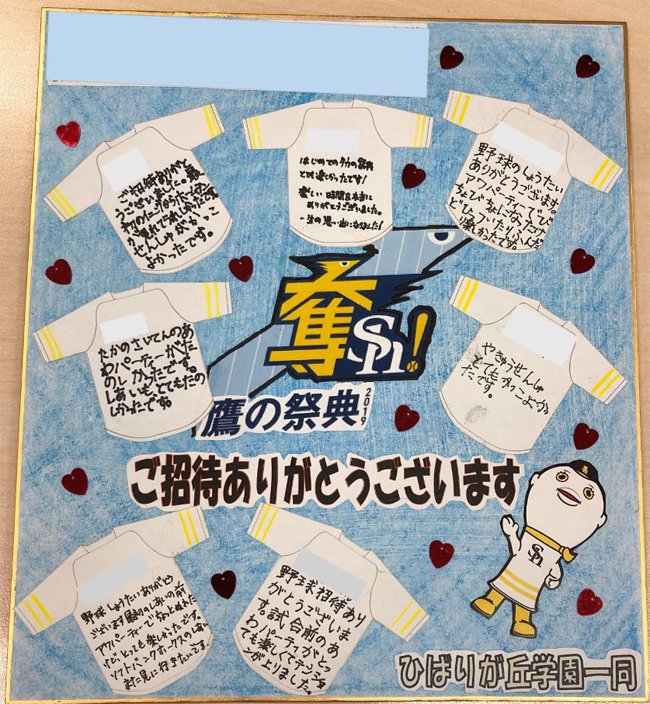 ご招待ありがと
うございました。最
せんしゅがかっこ
よかったです。
はじめてのタカの祭典
とても楽しかったです!
楽しい時間を本当に
ありがとうございました。
一生の思い出になりました!
野球のしょうたい
ありがとうございます。
アワパーティーでび
ちょびちょになったけ
楽しかったです。
たかのさいてんのあ
わパーティーがた
のしかったです。
しあいも、とてもたの
しかったです。
奪Sh!
鷹の祭典 2019
やきゅうせんしゅ
とてもかっこよかっ
たです。
ご招待ありがとうございます
野球しょうたいありがと
うございます 最初のしあいの前
アワパーティーで
けど、とても楽しかったです。
ソフトバンクホークスのしあい
また見に行きたいです。
野球招待あり
がとうございま
す。試合前のあ
わパーティがと
ても楽しくてテンショ
ンが上りました。
Sh
ひばりが丘学園一同